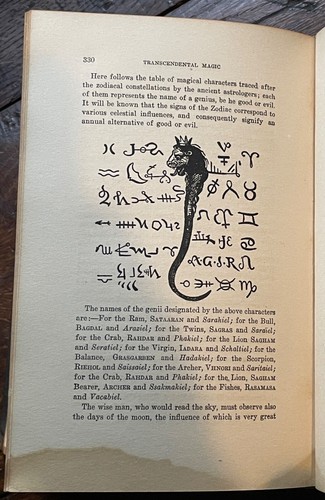 330 TRANSCENDENTAL MAGIC
Here follows the table of magical characters traced after
the zodiacal constellations by the ancient astrologers; each
of them represents the name of a genius, be he good or evil.
It will be known that the signs of the Zodiac correspond to
various celestial influences, and consequently signify an
annual alternative of good or evil.
A·G·S·R
The names of the genii designated by the above characters
are:—For the Ram, SATAARAN and Sarahiel; for the Bull,
BAGDAL and Araziel; for the Twins, SAGRAS and Saraiel;
for the Crab, RAHDAR and Phakiel; for the Lion SAGHAM
and Seratiel; for the Virgin, IADARA and Schaltiel; for the
Balance, GRASGARBEN and Hadakiel; for the Scorpion,
RIEHOL and Saissaiel; for the Archer, VHNORI and Saritaiel;
for the Crab, RAHDAR and Phakiel; for the, Lion, SAGHAM
Bearer, ARCHER and Ssakmakiel; for the Fishes, RASAMASA
and Vacabiel.
The wise man, who would read the sky, must observe also
the days of the moon, the influence of which is very great